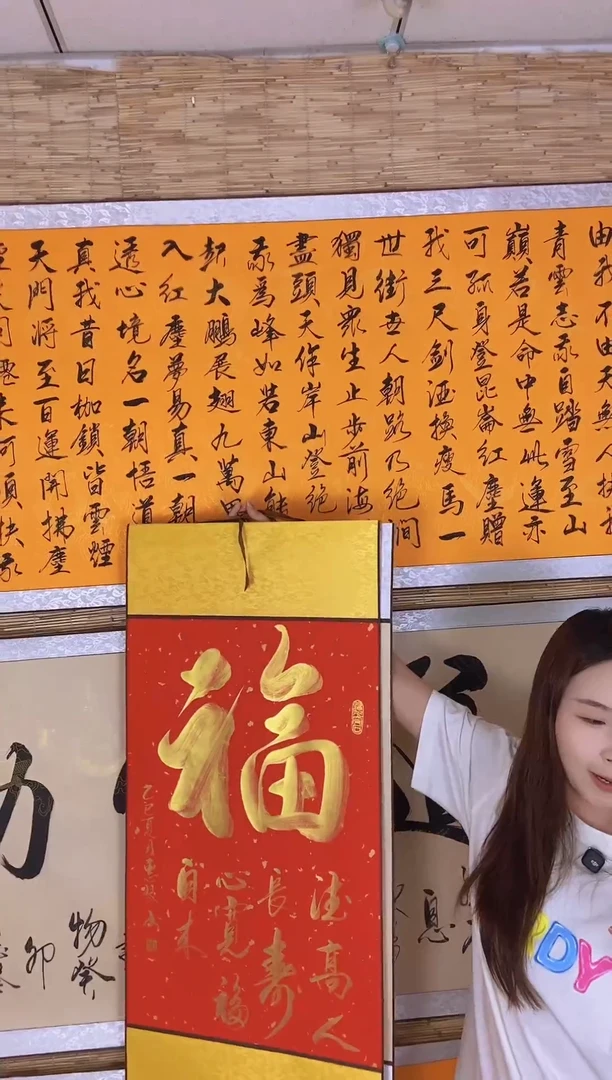 由我不由天無人扶我
青雲志我自踏雪至山
巔若是命中無此運亦
可孤身登昆崙紅塵贈
我三尺劍酒換瘦馬一
世人朝路乃絕澗
獨見眾生止步前海
盡頭天作岸山登絕
我為峰如若東山能
起大鵬展翅九萬里
入紅塵夢易真一朝
透心境名一朝悟道
真我昔日枷鎖皆雲煙
天門將至百運開拂塵
來何須扶我
福
德高人
長壽
心寬福
自來
乙巳夏月
息
物癸
卯
DY